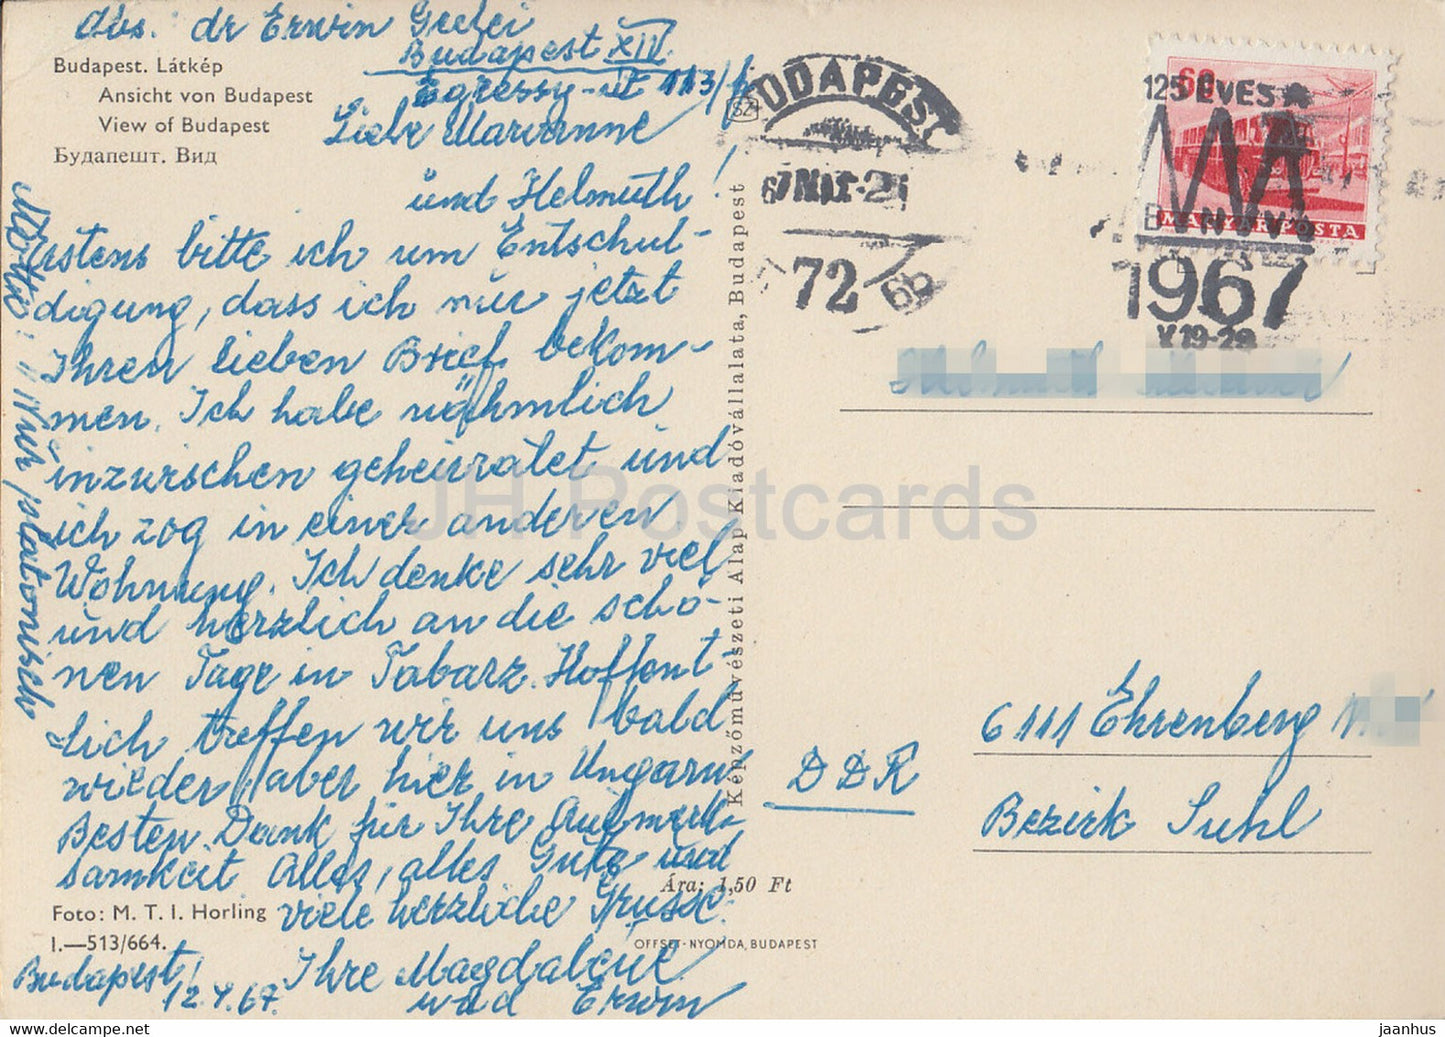 Abs. dr Erwin
Budapest XIV.
Egressy-út 113/
Budapest. Látkép
Ansicht von Budapest
View of Budapest
Будапешт. Вид
Liebe Marianne
und Helmuth!
Erstens bitte ich um Entschul-
digung, dass ich nur jetzt
Ihren lieben Brief bekom-
men. Ich habe nähmlich
inzwischen geheiratet und
ich zog in einer anderen
Wohnung. Ich denke sehr viel
und herzlich an die schö-
nen Tage in Tabarz. Hoffent-
lich treffen wir uns bald
wieder, aber hier in Ungarn
Besten Dank für Ihre Aufmerk-
samkeit Alles, alles Gute und
viele herzliche Grüsse:
Ihre Magdalene
und Erwin
Budapest,
12.4.67.
nur platonisch
Foto: M. T. I. Horling
I.—513/664.
Képzőművészeti Alap Kiadóvállalata, Budapest
Ára: 1,50 Ft
OFFSET-NYOMDA, BUDAPEST
BUDAPEST
72
6b
60
MAGYAR POSTA
125 ÉVES A
BNV
1967
V.19-29
Helmuth
6111 Ehrenberg
DDR
Bezirk Suhl
JH Postcards
jaanhus
https://www.delcampe.net